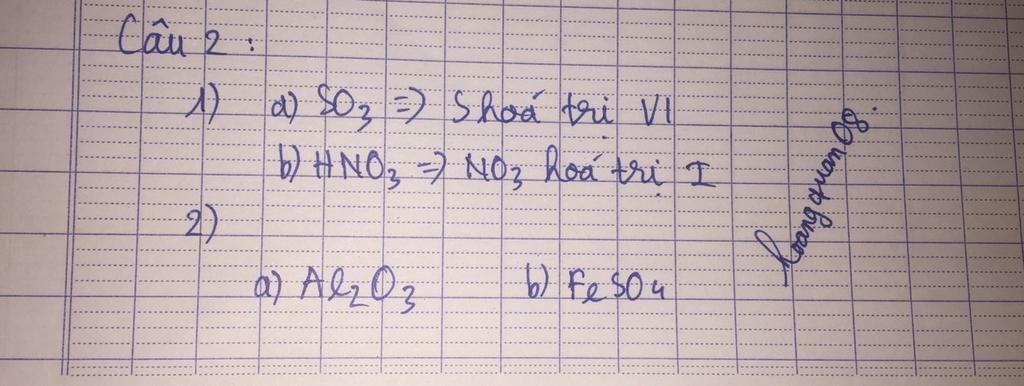 Câu 2 :
1) a) SO3 => S hoá trị VI
b) HNO3 => NO3 hoá trị I
2)
a) Al2O3 b) FeSO4
hoangquan08.